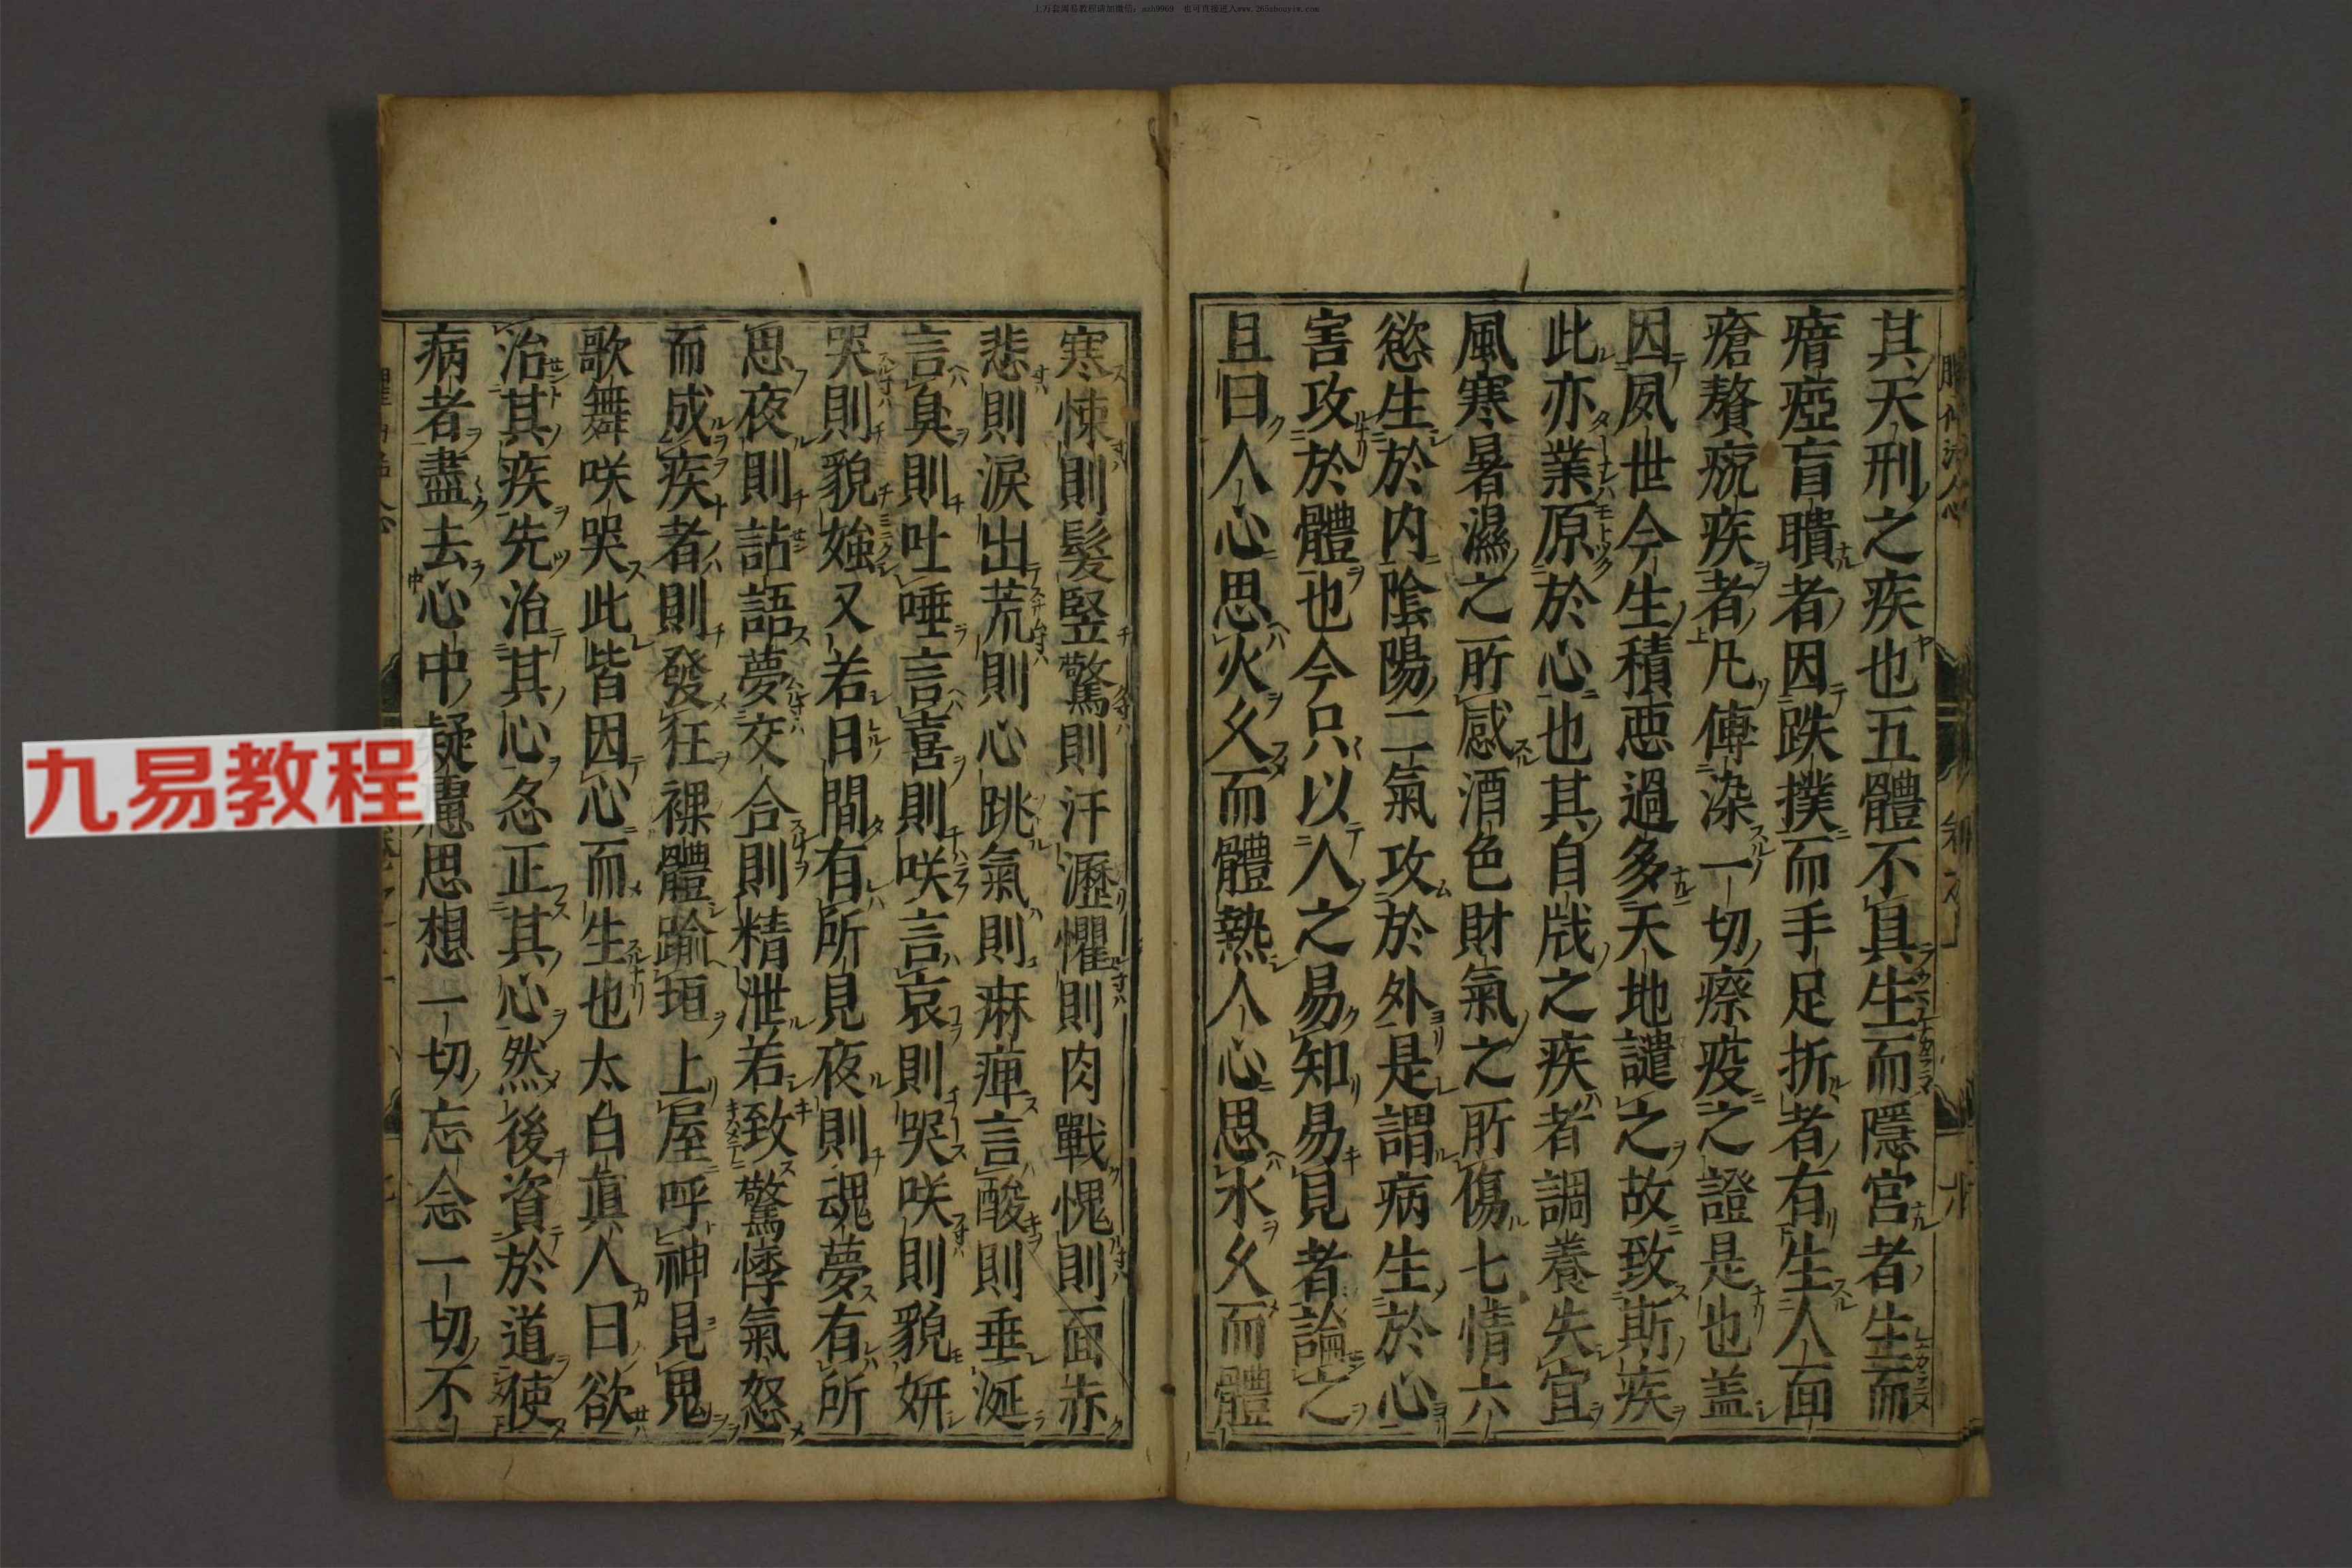 上万套周易教程请加微信：azh0969　也可直接进入www.265zhouyiw.com
其天刑之疾也五體不具生而隱宮者生而
瘖瘂盲聵者因跌撲而手足折者有生人面
瘡贅疣疾者凡傳染一切瘵疫之證是也盖
因夙世今生積惡過多天地譴之故致斯疾
此亦業原於心也其自戕之疾者調養失宜
風寒暑濕之所感酒色財氣之所傷七情六
慾生於内陰陽二氣攻於外是謂病生於心
害攻於體也今只以人之易知易見者論之
且曰人心思火久而體熱人心思氷久而體
寒悚則髮竪驚則汗瀝懼則肉戰愧則面赤
悲則淚出荒則心跳氣則麻痺言酸則垂涎
言臭則吐唾言喜則咲言哀則哭咲則貌妍
哭則貌媸又若日間有所見夜則魂夢有所
思夜則詀語夢交合則精泄若致驚悸氣怒
而成疾者則發狂裸體踰垣上屋呼神見鬼
歌舞咲哭此皆因心而生也太白真人曰欲
治其疾先治其心必正其心然後資於道使
病者盡去心中疑慮思想一切忘念一切不
九易教程